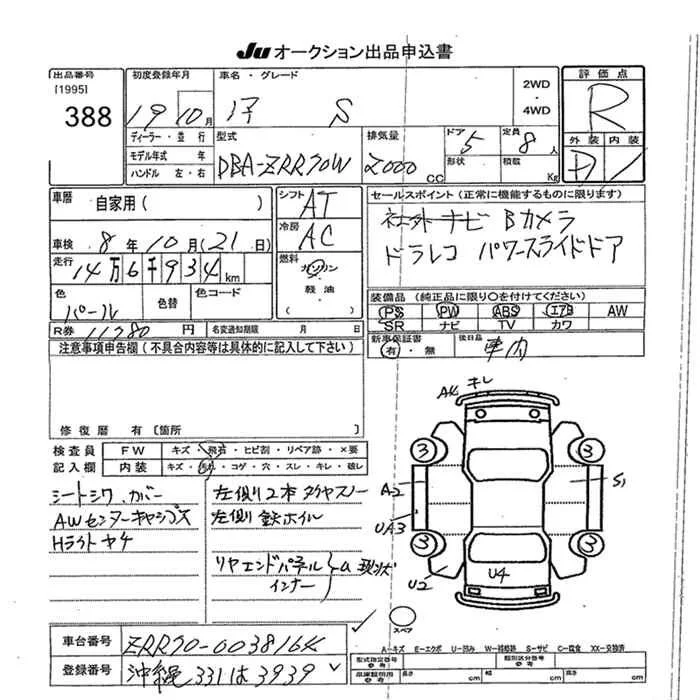 Ju オークション出品申込書
出品番号
[1995]
388
初度登録年月
19 10 月
車名・グレード
S
2WD
・
4WD
評価点
R
外装 内装
D
ディーラー・並行
モデル年式 年
ハンドル 左・右
型式
DBA-ZRR70W
排気量
2000 cc
ドア 5
形状
定員 8 人
積載 Kg
車歴
自家用( )
車検 8 年 10 月(21 日)
走行 14 万 6 千 9 3 4 km
色
パール
色替
色コード
R券 11280 円
名変通知期限 月 日
シフト
AT
冷房
AC
燃料
ガソリン
・
軽油
( )
セールスポイント(正常に機能するものに限ります)
社外ナビ Bカメラ
ドラレコ パワースライドドア
装備品(純正品に限り○を付けてください)
PS PW ABS エアB AW
SR ナビ TV カワ
新車保証書
有・無
後日品
車内
注意事項申告欄(不具合内容等は具体的に記入して下さい)
修復歴 有[箇所 ]
検査員
記入欄
FW キズ・飛石・ヒビ割・リペア跡・×要
内装 キズ・汚れ・コゲ・穴・スレ・キレ・破レ
シートシワ、カバー
AWセンターキャップズ
Hライトヤケ
左側2本
左側鉄ホイル
リヤエンドパネル
インナー
現状
A4 キレ
3 3
A2 S1
UA3
3 3
U2 U4
スペア
車台番号 ZRR70-0038164
登録番号 沖縄 331 は 3939
A-キズ E-エクボ U-凹み W-補修跡 S-サビ C-腐食 XX-交換済
型式指定番号
(参考)
類別区分番号
(参考)
車庫証明用
(参考)
長さ cm 幅 cm 高さ cm